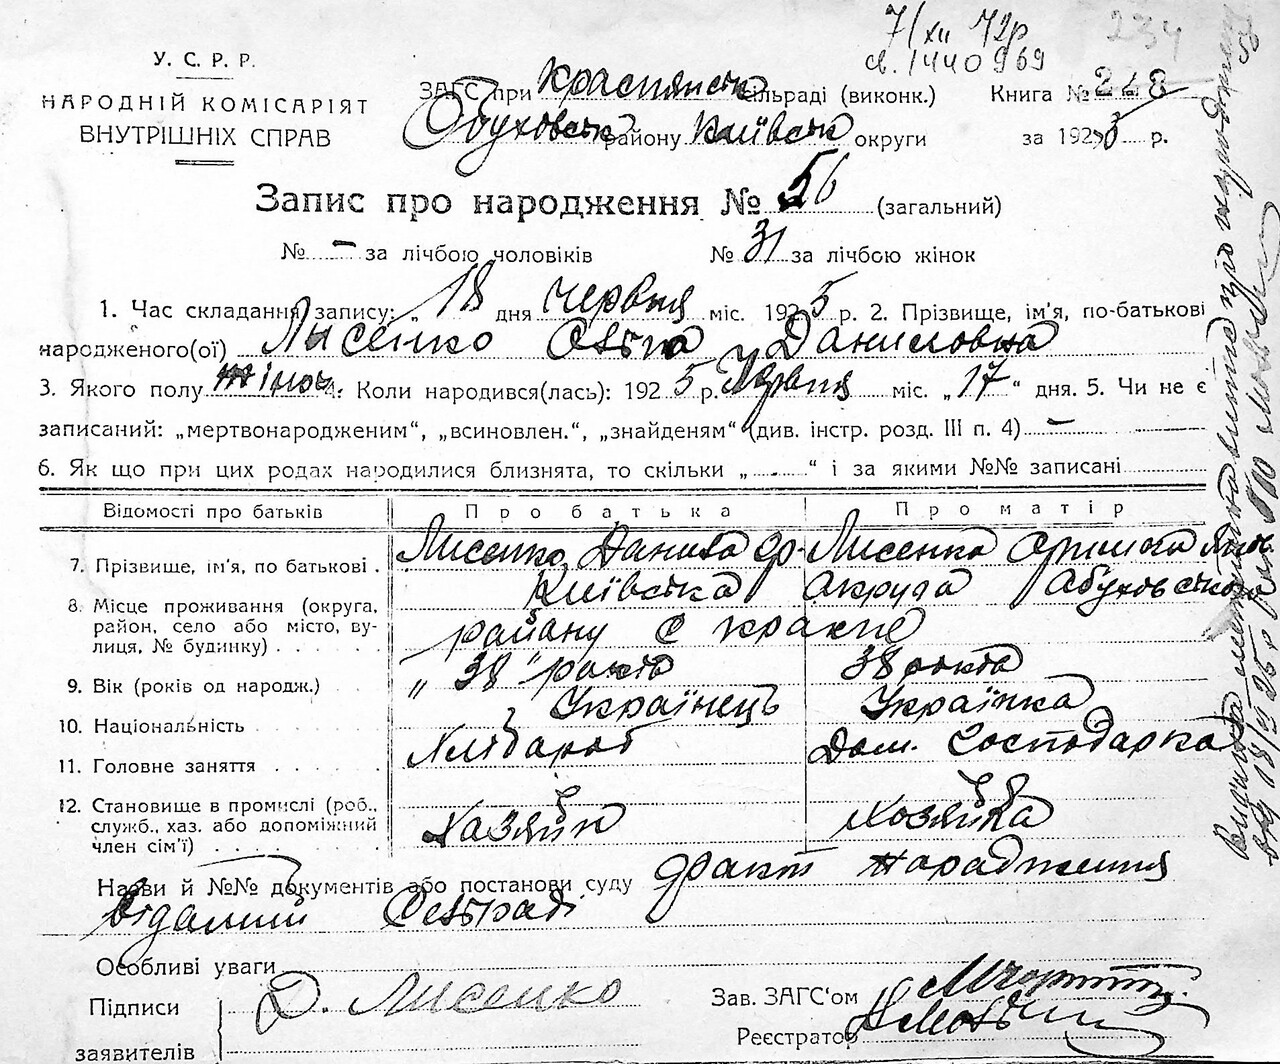 7/XII 72р
св. 1440969
234
У. С. Р. Р.
НАРОДНІЙ КОМІСАРІЯТ
ВНУТРІШНІХ СПРАВ
ЗАГС при сільраді (виконк.) Книга № 228
Обуховськ району Київськ округи за 1925 р.
Запис про народження № 56 (загальний)
№ – за лічбою чоловіків № 31 за лічбою жінок
1. Час складання запису: „ 18 дня червня міс. 1925 р. 2. Прізвище, ім'я, по-батькові
народженого(ої) Лысенко Ольга Даниловна
3. Якого полу жіноч. 4. Коли народився(лась): 1925 р. Червня міс. „17“ дня. 5. Чи не є
записаний: „мертвонародженим“, „всиновлен.“, „знайденям“ (див. інстр. розд. III п. 4) –
6. Як що при цих родах народилися близнята, то скільки „ “ і за якими №№ записані
Відомості про батьків Про батька Про матір
7. Прізвище, ім'я, по батькові . Лисенко Данило Лисенка
Київська Округа Обуховського
8. Місце проживання (округа, район, село або місто, вулиця, № будинку) . . . . .
району С
9. Вік (років од народж.) „ 38 “ рокта 38 рокта
10. Національність Українець Українка
11. Головне заняття . . . . . Хлібароб Дом. Господарка
12. Становище в промислі (роб.,
служб., хаз. або допоміжний
член сім'ї) . . . . . . . Хазяїн Хозяйка
Назви й №№ документів або постанови суду факт народження
відамий Сельраді
Особливі уваги
Підписи Д. Лисенко Зав. ЗАГС'ом
заявителів Реєстратор